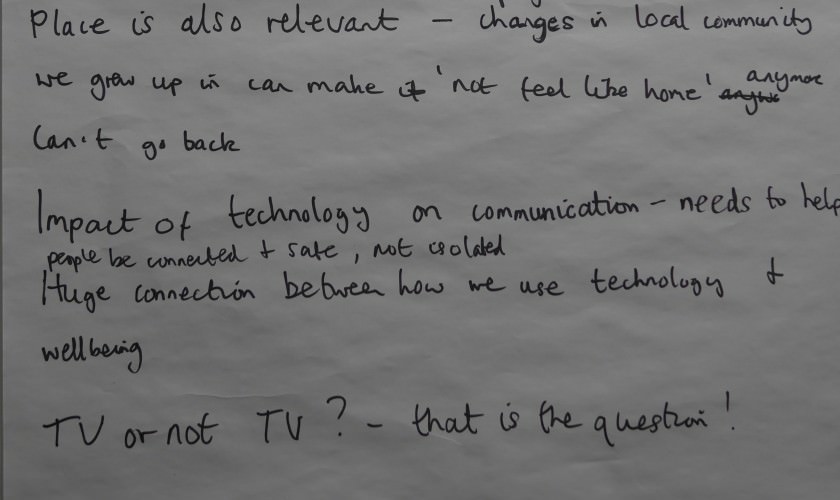 Place is also relevant - changes in local community
we grew up in can make it 'not feel like home' anymore
Can't go back
Impact of technology on communication - needs to help
people be connected & safe, not isolated
Huge connection between how we use technology &
wellbeing
TV or not TV? - that is the question!